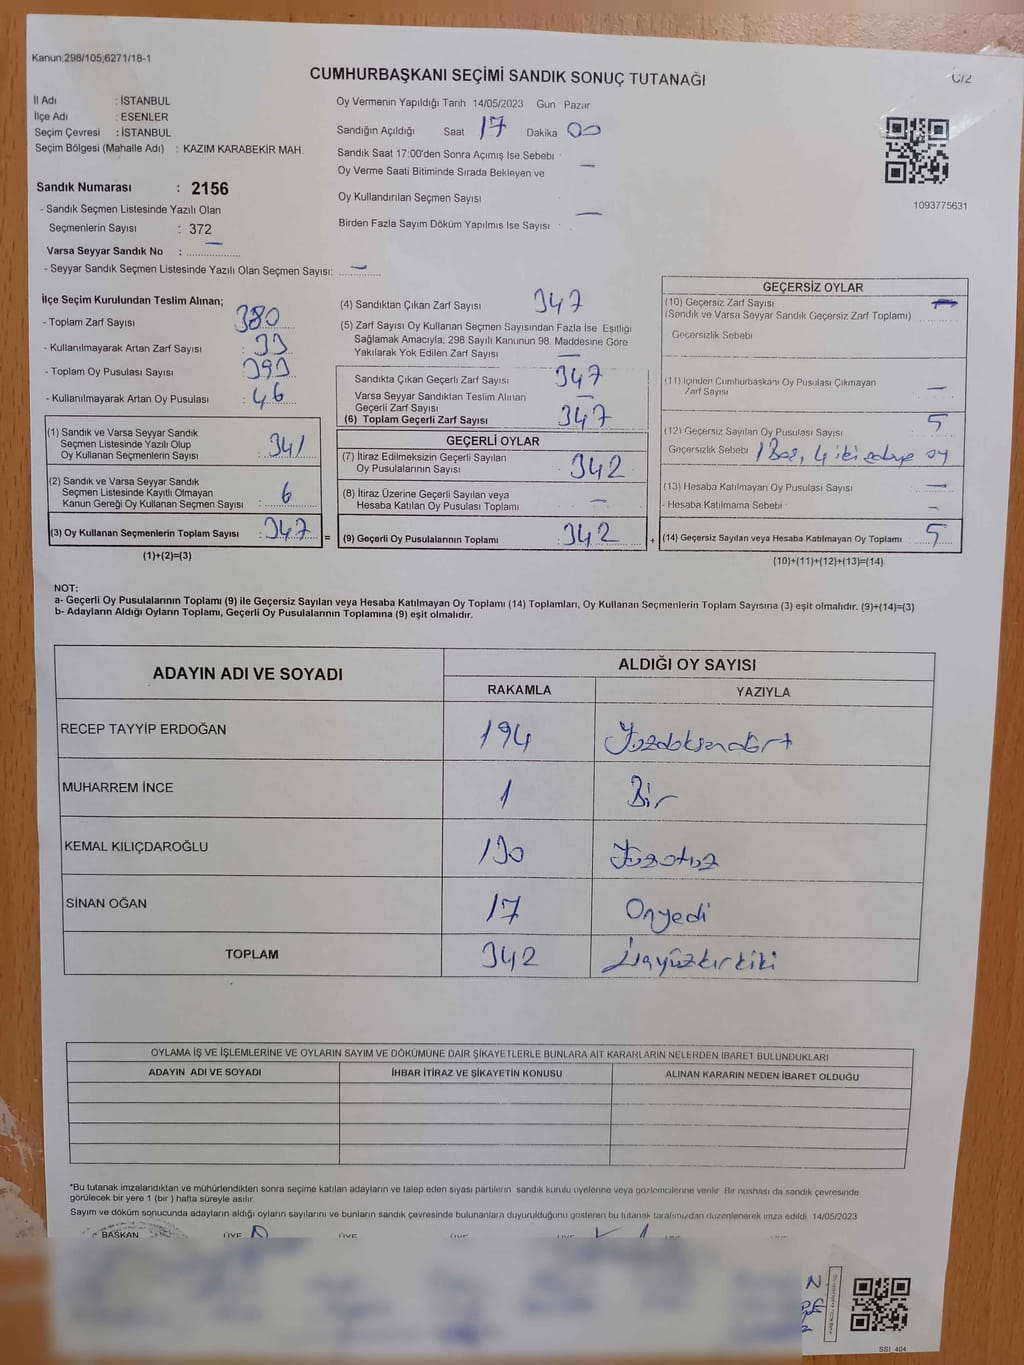 Kanun;298/105;6271/18-1
CUMHURBAŞKANI SEÇİMİ SANDIK SONUÇ TUTANAĞI
C/2
İl Adı : İSTANBUL
İlçe Adı : ESENLER
Seçim Çevresi : İSTANBUL
Seçim Bölgesi (Mahalle Adı) : KAZIM KARABEKİR MAH.
Sandık Numarası : 2156
- Sandık Seçmen Listesinde Yazılı Olan
Seçmenlerin Sayısı : 372
Varsa Seyyar Sandık No : —
- Seyyar Sandık Seçmen Listesinde Yazılı Olan Seçmen Sayısı: —
Oy Vermenin Yapıldığı Tarih 14/05/2023 Gün Pazar
Sandığın Açıldığı Saat 17 Dakika 00
Sandık Saat 17:00'den Sonra Açımış İse Sebebi : —
Oy Verme Saati Bitiminde Sırada Bekleyen ve
Oy Kullandırılan Seçmen Sayısı —
Birden Fazla Sayım Döküm Yapılmış İse Sayısı :
1093775631
İlçe Seçim Kurulundan Teslim Alınan;
- Toplam Zarf Sayısı : 380
- Kullanılmayarak Artan Zarf Sayısı : 33
- Toplam Oy Pusulası Sayısı : 393
- Kullanılmayarak Artan Oy Pusulası : 46
(1) Sandık ve Varsa Seyyar Sandık
Seçmen Listesinde Yazılı Olup
Oy Kullanan Seçmenlerin Sayısı : 341
(2) Sandık ve Varsa Seyyar Sandık
Seçmen Listesinde Kayıtlı Olmayan
Kanun Gereği Oy Kullanan Seçmen Sayısı : 6
(3) Oy Kullanan Seçmenlerin Toplam Sayısı : 347 =
(1)+(2)=(3)
(4) Sandıktan Çıkan Zarf Sayısı 347
(5) Zarf Sayısı Oy Kullanan Seçmen Sayısından Fazla İse, Eşitliği
Sağlamak Amacıyla; 298 Sayılı Kanunun 98. Maddesine Göre
Yakılarak Yok Edilen Zarf Sayısı —
Sandıkta Çıkan Geçerli Zarf Sayısı 347
Varsa Seyyar Sandıktan Teslim Alınan
Geçerli Zarf Sayısı —
(6) Toplam Geçerli Zarf Sayısı 347
GEÇERLİ OYLAR
(7) İtiraz Edilmeksizin Geçerli Sayılan
Oy Pusulalarının Sayısı 342
(8) İtiraz Üzerine Geçerli Sayılan veya
Hesaba Katılan Oy Pusulası Toplamı —
(9) Geçerli Oy Pusulalarının Toplamı : 342 +
GEÇERSİZ OYLAR
(10) Geçersiz Zarf Sayısı —
(Sandık ve Varsa Seyyar Sandık Geçersiz Zarf Toplamı)
Geçersizlik Sebebi
(11) İçinden Cumhurbaşkanı Oy Pusulası Çıkmayan
Zarf Sayısı —
(12) Geçersiz Sayılan Oy Pusulası Sayısı 5
Geçersizlik Sebebi 1 Boş, 4 iki adaya oy
(13) Hesaba Katılmayan Oy Pusulası Sayısı —
- Hesaba Katılmama Sebebi —
(14) Geçersiz Sayılan veya Hesaba Katılmayan Oy Toplamı : 5
(10)+(11)+(12)+(13)=(14)
NOT:
a- Geçerli Oy Pusulalarının Toplamı (9) ile Geçersiz Sayılan veya Hesaba Katılmayan Oy Toplamı (14) Toplamları, Oy Kullanan Seçmenlerin Toplam Sayısına (3) eşit olmalıdır. (9)+(14)=(3)
b- Adayların Aldığı Oyların Toplamı, Geçerli Oy Pusulalarının Toplamına (9) eşit olmalıdır.
ADAYIN ADI VE SOYADI
ALDIĞI OY SAYISI
RAKAMLA YAZIYLA
RECEP TAYYİP ERDOĞAN 194 Yüzdoksandört
MUHARREM İNCE 1 Bir
KEMAL KILIÇDAROĞLU 130 Yüzotuz
SİNAN OĞAN 17 Onyedi
TOPLAM 342 Üçyüzkırkiki
OYLAMA İŞ VE İŞLEMLERİNE VE OYLARIN SAYIM VE DÖKÜMÜNE DAİR ŞİKAYETLERLE BUNLARA AİT KARARLARIN NELERDEN İBARET BULUNDUKLARI
ADAYIN ADI VE SOYADI İHBAR İTİRAZ VE ŞİKAYETİN KONUSU ALINAN KARARIN NEDEN İBARET OLDUĞU
*Bu tutanak imzalandıktan ve mühürlendikten sonra seçime katılan adayların ve talep eden siyasi partilerin sandık kurulu üyelerine veya gözlemcilerine verilir. Bir nüshası da sandık çevresinde
görülecek bir yere 1 (bir ) hafta süreyle asılır.
Sayım ve döküm sonucunda adayların aldığı oyların sayılarını ve bunların sandık çevresinde bulunanlara duyurulduğunu gösteren bu tutanak tarafımızdan düzenlenerek imza edildi. 14/05/2023
BAŞKAN ÜYE ÜYE ÜYE ÜYE ÜYE
SSI_404